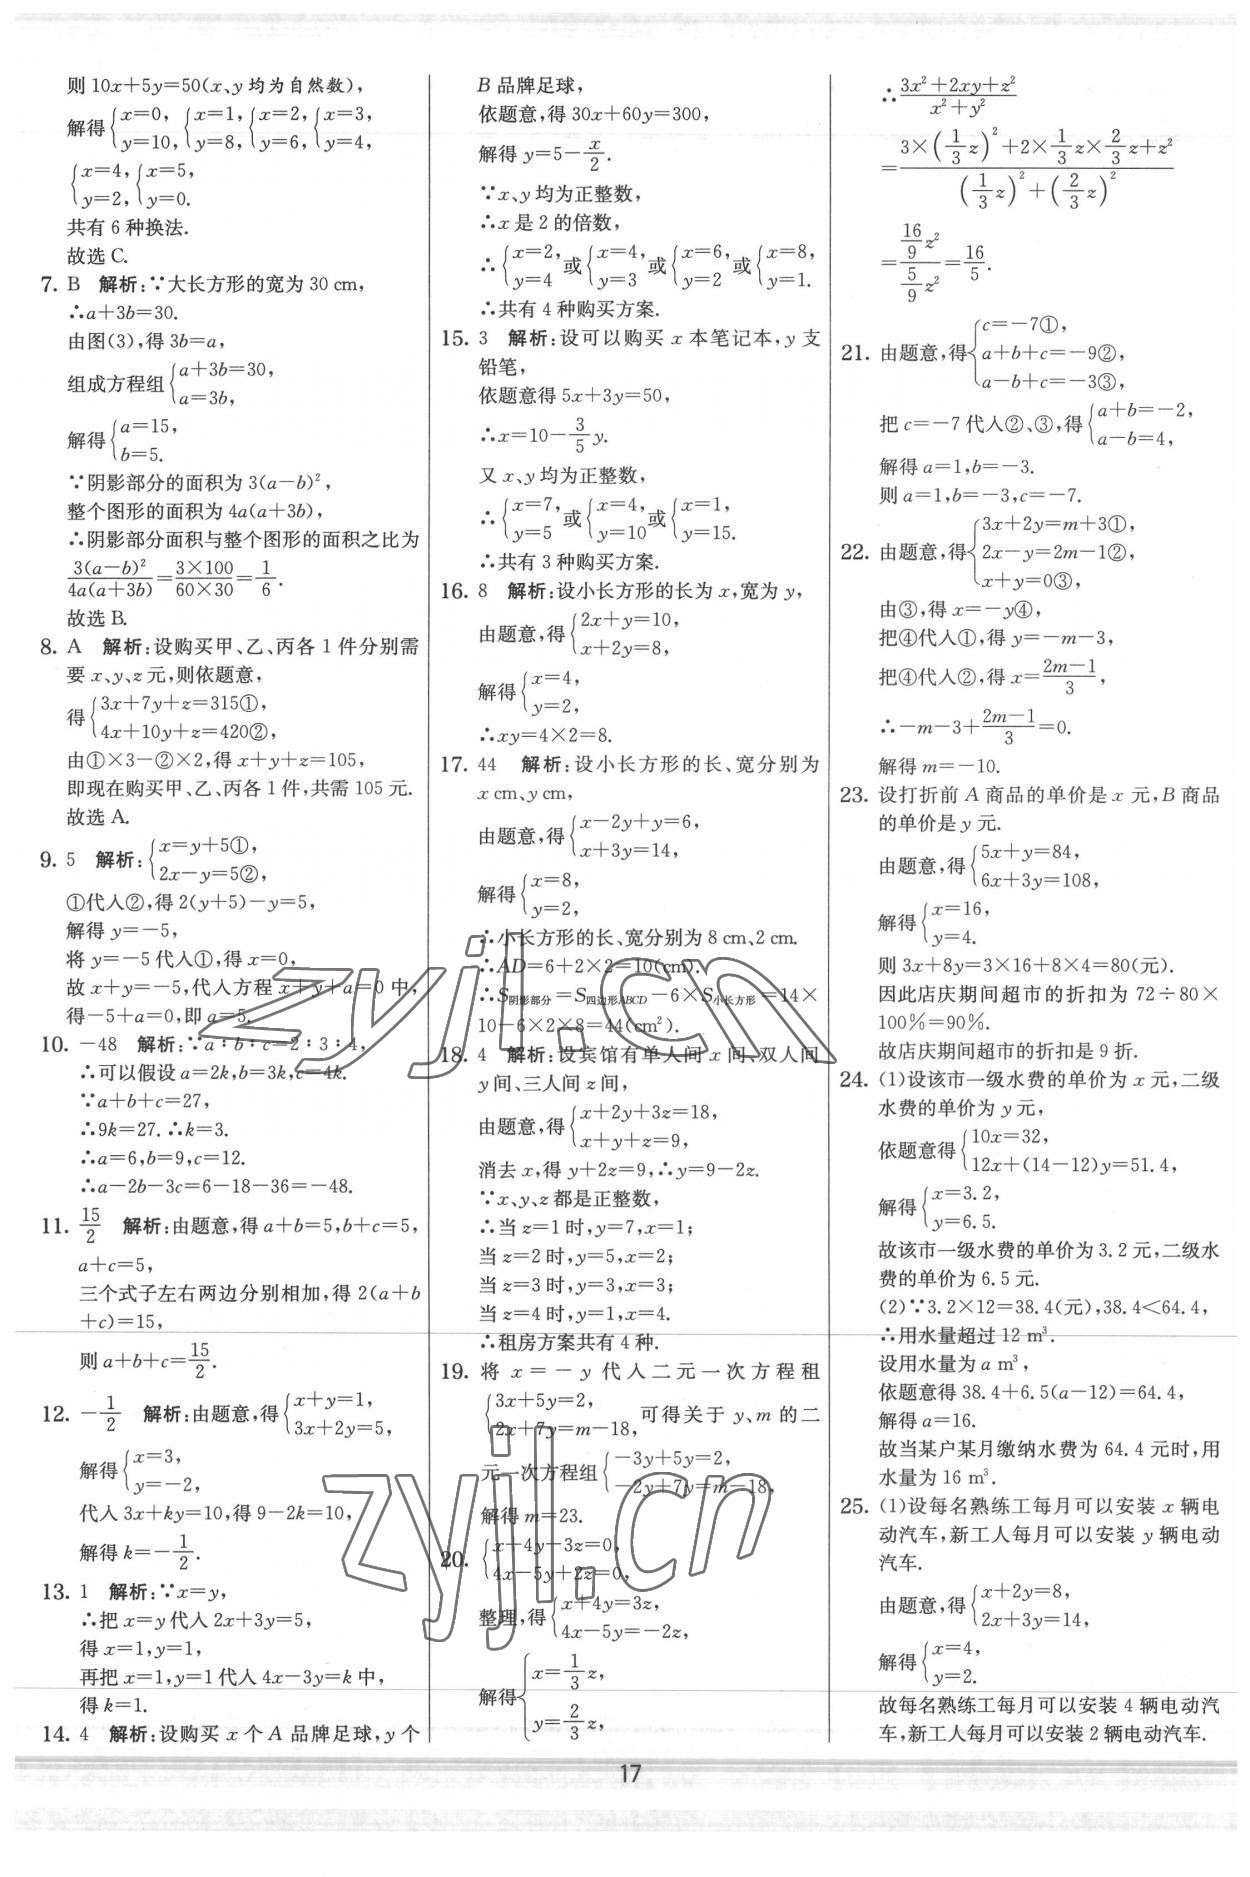 则10x+5y=50(x、y均为自然数),
解得{x=0, y=10, {x=1, y=8, {x=2, y=6, {x=3, y=4,
{x=4, y=2, {x=5, y=0.
共有6种换法.
故选C.
7. B 解析:∵大长方形的宽为30 cm,
∴a+3b=30.
由图(3),得3b=a,
组成方程组{a+3b=30, a=3b,
解得{a=15, b=5.
∵阴影部分的面积为3(a-b)²,
整个图形的面积为4a(a+3b),
∴阴影部分面积与整个图形的面积之比为
3(a-b)²/4a(a+3b)=3×100/60×30=1/6.
故选B.
8. A 解析:设购买甲、乙、丙各1件分别需
要x、y、z元,则依题意,
得{3x+7y+z=315①, 4x+10y+z=420②,
由①×3-②×2,得x+y+z=105,
即现在购买甲、乙、丙各1件,共需105元.
故选A.
9. 5 解析:{x=y+5①, 2x-y=5②,
①代入②,得2(y+5)-y=5,
解得y=-5,
将y=-5代入①,得x=0,
故x+y=-5,代入方程x+y+a=0中,
得-5+a=0,即a=5.
10. -48 解析:∵a∶b∶c=2∶3∶4,
∴可以假设a=2k,b=3k,c=4k.
∵a+b+c=27,
∴9k=27.∴k=3.
∴a=6,b=9,c=12.
∴a-2b-3c=6-18-36=-48.
11. 15/2 解析:由题意,得a+b=5,b+c=5,
a+c=5,
三个式子左右两边分别相加,得2(a+b
+c)=15,
则a+b+c=15/2.
12. -1/2 解析:由题意,得{x+y=1, 3x+2y=5,
解得{x=3, y=-2,
代入3x+ky=10,得9-2k=10,
解得k=-1/2.
13. 1 解析:∵x=y,
∴把x=y代入2x+3y=5,
得x=1,y=1,
再把x=1,y=1代入4x-3y=k中,
得k=1.
14. 4 解析:设购买x个A品牌足球,y个
B品牌足球,
依题意,得30x+60y=300,
解得y=5-x/2.
∵x、y均为正整数,
∴x是2的倍数,
∴{x=2, y=4或{x=4, y=3或{x=6, y=2或{x=8, y=1.
∴共有4种购买方案.
15. 3 解析:设可以购买x本笔记本,y支
铅笔,
依题意得5x+3y=50,
∴x=10-3/5y.
又x、y均为正整数,
∴{x=7, y=5或{x=4, y=10或{x=1, y=15.
∴共有3种购买方案.
16. 8 解析:设小长方形的长为x,宽为y,
由题意,得{2x+y=10, x+2y=8,
解得{x=4, y=2,
∴xy=4×2=8.
17. 44 解析:设小长方形的长、宽分别为
x cm、y cm,
由题意,得{x-2y+y=6, x+3y=14,
解得{x=8, y=2,
∴小长方形的长、宽分别为8 cm、2 cm.
∴AD=6+2×2=10(cm).
∴S阴影部分=S四边形ABCD-6×S小长方形=14×
10-6×2×8=44(cm²).
18. 4 解析:设宾馆有单人间x间、双人间
y间、三人间z间,
由题意,得{x+2y+3z=18, x+y+z=9,
消去x,得y+2z=9,∴y=9-2z.
∵x、y、z都是正整数,
∴当z=1时,y=7,x=1;
当z=2时,y=5,x=2;
当z=3时,y=3,x=3;
当z=4时,y=1,x=4.
∴租房方案共有4种.
19. 将x=-y代入二元一次方程组
{3x+5y=2, 2x+7y=m-18, 可得关于y、m的二
元一次方程组{-3y+5y=2, -2y+7y=m-18,
解得m=23.
20. {x+4y-3z=0, 4x-5y+2z=0,
整理,得{x+4y=3z, 4x-5y=-2z,
解得{x=1/3z, y=2/3z,
∴3x²+2xy+z²/x²+y²
=3×(1/3z)²+2×1/3z×2/3z+z²/(1/3z)²+(2/3z)²
=16/9z²/5/9z²=16/5.
21. 由题意,得{c=-7①, a+b+c=-9②, a-b+c=-3③,
把c=-7代入②、③,得{a+b=-2, a-b=4,
解得a=1,b=-3.
则a=1,b=-3,c=-7.
22. 由题意,得{3x+2y=m+3①, 2x-y=2m-1②, x+y=0③,
由③,得x=-y④,
把④代入①,得y=-m-3,
把④代入②,得x=2m-1/3,
∴-m-3+2m-1/3=0.
解得m=-10.
23. 设打折前A商品的单价是x元,B商品
的单价是y元.
由题意,得{5x+y=84, 6x+3y=108,
解得{x=16, y=4.
则3x+8y=3×16+8×4=80(元).
因此店庆期间超市的折扣为72÷80×
100%=90%.
故店庆期间超市的折扣是9折.
24. (1)设该市一级水费的单价为x元,二级
水费的单价为y元,
依题意得{10x=32, 12x+(14-12)y=51.4,
解得{x=3.2, y=6.5.
故该市一级水费的单价为3.2元,二级水
费的单价为6.5元.
(2)∵3.2×12=38.4(元),38.4<64.4,
∴用水量超过12 m³.
设用水量为a m³,
依题意得38.4+6.5(a-12)=64.4,
解得a=16.
故当某户某月缴纳水费为64.4元时,用
水量为16 m³.
25. (1)设每名熟练工每月可以安装x辆电
动汽车,新工人每月可以安装y辆电动
汽车.
由题意,得{x+2y=8, 2x+3y=14,
解得{x=4, y=2.
故每名熟练工每月可以安装4辆电动汽
车,新工人每月可以安装2辆电动汽车.
17
zyjl.cn
zyjl.cn